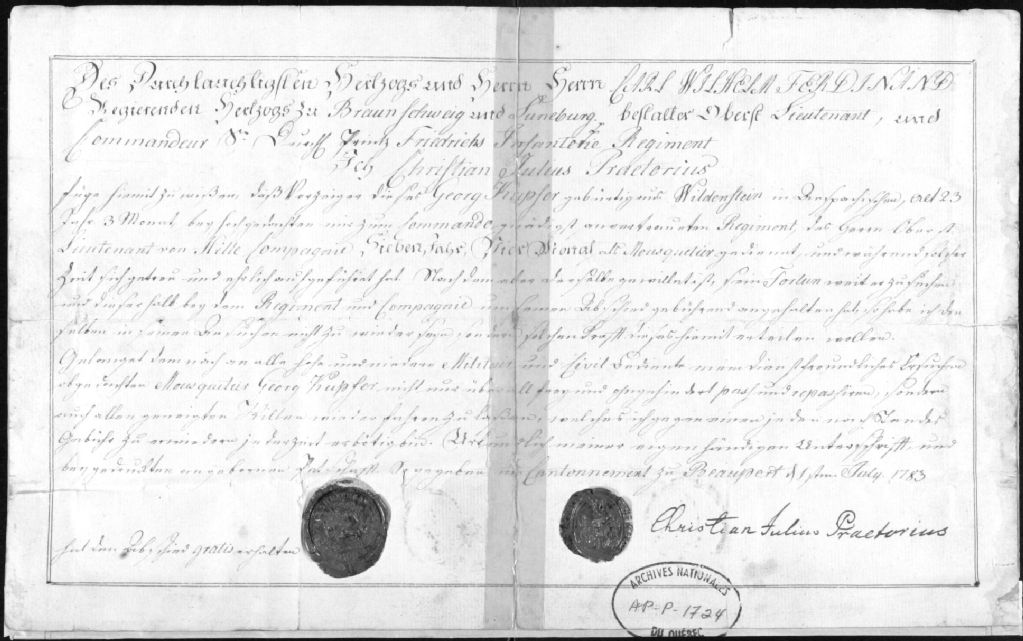 Des Durchlauchtigsten Hertzogs und Herrn Herrn CARL WILHELM FERDINAND
Regierenden Hertzogs zu Braunschweig und Luneburg, bestalter Oberst Lieutenant, und
Commandeur Sr Durchl Printz Friedrichs Infanterie Regiment
Ich Christian Julius Praetorius
füge hiemit zu wißen, daß Vorzeiger dieses Georg Kupfer gebürtig aus Wildenstein in Anspachischen, alt 23
Jahr 3 Monat bey hochgedachten mir zum Commando gnädigst anvertrauten Regiment, des Herrn Oberst
Lieutenant von Hille Compagnie Sieben Jahr, Monat als Mousquetier gedienet, und während solcher
Zeit sich getreu und ehrlich aufgeführet hat. Nach dem aber derselbe gewillet ist, sein Fortun weiter zu suchen
und dieserhalb bey dem Regiment und Compagnie um seinen Abschied gebührend angehalten hat, so habe ich dem
selben in seinem Ansuchen nicht zu wieder seyn, sondern solchen Krafft dieses hiemit erteilen wollen.
Gelanget demnach an alle hohe und niedere Militair und Civil Bediente mein dienstfreundliches Ersuchen
obgedachten Mousquetier Georg Kupfer, nicht nur überall frey und ohngehindert pass und repassiren, sondern
auch allen geneigten Willen wiederfahren zu laßen, welches ich gegen einen jeden nach Standes
Gebühr zu erwiedern jederzeit erbötig bin. Uhrkundlich meiner eigenhändigen Unterschrifft und
beygedruckten angebornen Pettschafft. So gegeben im Cantonnement zu Beauport d 1sten July 1783
hat den Abschied gratis erhalten
Christian Julius Praetorius
ARCHIVES NATIONALES
AP-P-1724
DU QUÉBEC